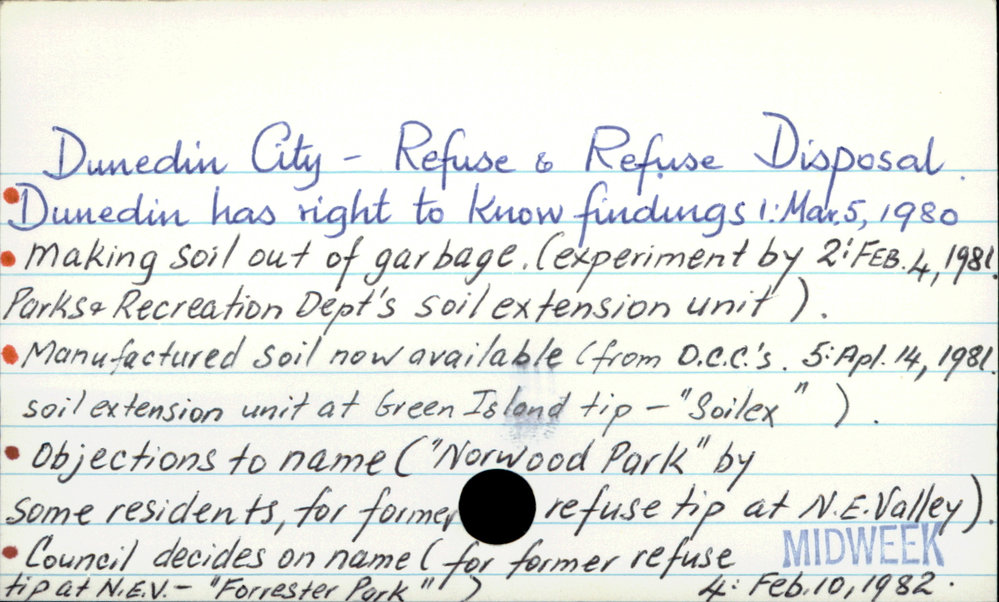 Dunedin City - Refuse & Refuse Disposal.
Dunedin has right to know findings 1: Mar. 5, 1980
Making soil out of garbage. (experiment by 2: FEB. 4, 1981.
Parks & Recreation Dept's soil extension unit).
Manufactured soil now available (from D.C.C.'s. 5: Apl. 14, 1981.
soil extension unit at Green Island tip - "Soilex").
Objections to name ("Norwood Park" by
some residents, for former refuse tip at N.E. Valley).
Council decides on name (for former refuse MIDWEEK
tip at N.E.V. - "Forrester Park") 4: Feb. 10, 1982.